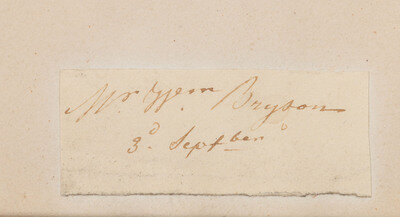 Mr Wm Bryson
3d. Septber